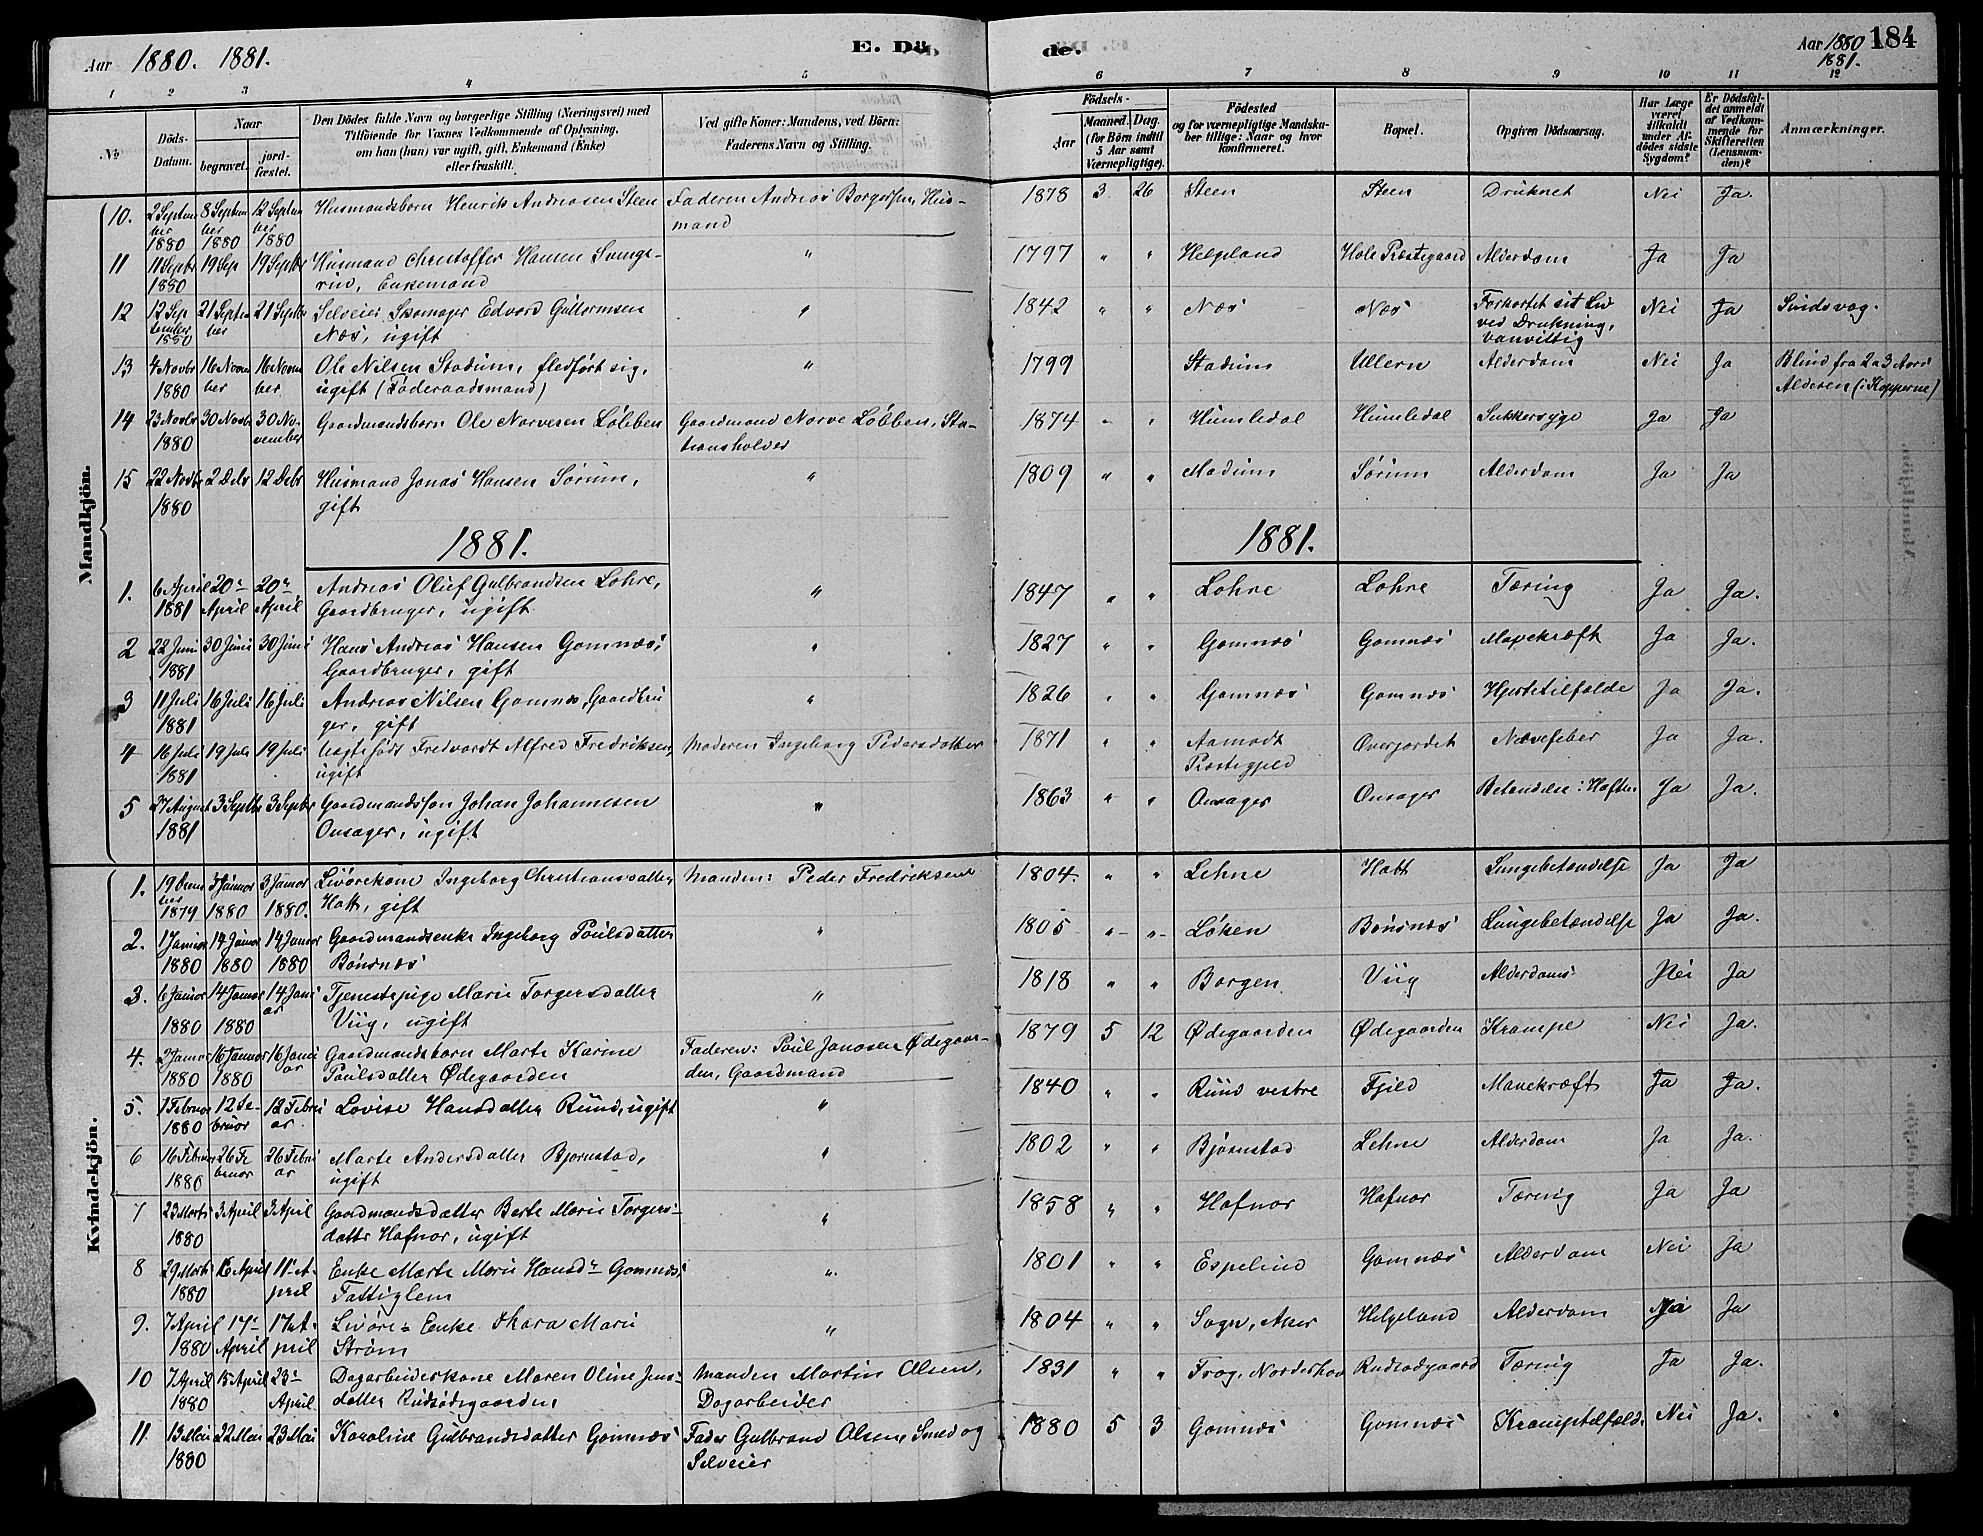 Aar 1880. 1881.
E. Döde.
Aar 1880 184
1881.
1 2 3 4 5 6 7 8 9 10 11 12
No
Döds-Datum.
Naar
begravet.
jordfæstet.
Den Dödes fulde Navn og borgerlige Stilling (Næringsvei) med
Tilföiende for Voxnes Vedkommende af Oplysning,
om han (hun) var ugift, gift, Enkemand (Enke)
eller fraskilt.
Ved gifte Koner: Mandens, ved Börn:
Faderens Navn og Stilling.
Födsels-
Aar
Maaned. Dag.
(for Börn indtil
5 Aar samt
Værnepligtige).
Födested
og for værnepligtige Mandska-
ber tillige: Naar og hvor
konfirmeret.
Bopæl.
Opgiven Dödsaarsag.
Har Læge
været
tilkaldt
under Af-
dödes sidste
Sygdom?
Er Dödsfal-
det anmeldt
af Vedkom-
mende for
Skifteretten
(Lensman-
den)?
Anmærkninger.
Mandkjön.
10. 2 Septem 8 Septem 12 Septem Husmandsbarn Henrik Andreasen Steen Faderen Andreas Borgersen, Hus- 1878 3 26 Steen Steen Druknet Nei Ja.
ber ber ber mand
1880 1880 1880
11 11 Septbr 19 Sep 19 Septbr Husmand Christoffer Hansen " 1797 " " Helgland Hole Præstegaard Alderdom Ja Ja
1880 rud, Enkemand
12 12 Sep 21 Septem 21 Septbr Selveier Skomager Edvard Guttormsen " 1842 " " Næs Næs Forkortet sit Liv Nei Ja Sindsvag.
tember ber Næs, ugift ved Drukning,
1880 vanvittig
13 4 Novbr 16 Novem 16 Novem Ole Nilsen Stadum, fledført sig, " 1799 Stadum Ullern Alderdom Nei Ja Blind fra 2 a 3 Aars
1880 ber ber ugift (Føderaadsmand) Alderen (i Kopperne)
14 23 Novbr 30 Novbr 30 No- Gaardmandsbarn Ole Narvesen Løbben Gaardmand Narve Løbben, Sta- 1874 " " Humledal Humledal Sukkersyge Ja Ja
1880 vember tionsholder
15 22 Novbr 2 Debr 12 Debr Husmand Jonas Hansen Sørum, " 1809 " " Modum Sørum Alderdom Ja Ja
1880 gift
1881. 1881.
1. 6 April 20de 20de Andreas Oluf Gulbrandsen Lohre, " 1847 " " Lohre Lohre Tæring Ja Ja.
1881 April April Gaardbruger, ugift
2 22 Juni 30 Juni 30 Juni Hans Andreas Hansen Gomnæs, " 1827 " " Gomnæs Gomnæs Mavekræft Ja Ja.
1881 Gaardbruger, gift
3 11 Juli 16 Juli 16 Juli Andreas Nilsen Gomnæs, Gaardbru " 1826 " " Gomnæs Gomnæs Hjertetilfælde Ja Ja.
1881 ger, gift
4 16 Juli 19 Juli 19 Juli Uægtefødt Fredvardt Alfred Fredriksen, Moderen Ingeborg Pedersdatter 1871 " " Aamodt Overjordet Nervefeber Ja Ja.
1881 ugift Præstegjeld
5 27 August 3 Septbr 3 Septbr Gaardmandssøn Johan Johannesen " 1863 " " Onsager Onsager Betændelse i Hoften Ja Ja.
1881 Onsager, ugift
Kvindekjön.
1. 19 Decem 3 Januar 3 Januar Livørekone Ingeborg Christiansdatter Manden: Peder Fredriksen 1804. " " Lehne Hatt Lungebetændelse Ja Ja
ber 1879 1880 1880. Hatt, gift
2. 1 Januar 14 Januar 14 Januar Gaardmandsenke Ingeborg Poulsdatter " 1805 " " Løken Bønsnæs Lungebetændelse Ja Ja.
1880 1880 1880 Bønsnæs
3. 6 Januar 14 Januar 14 Janu Tjenestepige Marie Torgersdatter " 1818 " " Borgen Viig Alderdoms Nei Ja
1880 1880 ar Viig, ugift
4. 2 Januar 16 Januar 16 Janu Gaardmandsbarn Marte Karine Faderen: Poul Jonasen Ødegaar- 1879 5 12 Ødegaarden Ødegaarden Krampe Nei Ja.
1880 1880 ar Poulsdatter Ødegaarden den, Gaardmand
5. 1 Februar 12 Fe- 12 Febru Lovise Hansdatter Ruud, ugift " 1840 " " Ruud vestre Fjeld Mavekræft Ja Ja.
1880 bruar ar
6 16 Februar 26 Fe 26 Febru Marte Andersdatter Bjørnstad, " 1802 " " Bjørnstad Lehne Alderdom Ja Ja.
1880 bruar ar ugift
7 23 Marts 3 April 3 April Gaardmandsdatter Berte Marie Torgers- " 1858 " " Hafnor Hafnor Tæring Ja Ja
1880 datter Hafnor, ugift
8 29 Marts April 11te A- Enke Marte Marie Hansdr Gomnæs, " 1801 " " Espelund Gomnæs Alderdom Nei Ja
1880 pril Fattiglem
9. 7 April 17de 17de A- Livøre- Enke Mari " 1804 " " Sogn, Aker Helgeland Alderdom Nei Ja
1880 April pril Strøm
10 7 April 15 April 23de Dagarbeiderkone Maren Oline Jens- Manden Martin Olsen, 1831 " " Frog, Norderhov Rudsødgaard Tæring Ja Ja.
1880 April datter Rudsødegaarden Dagarbeider
11 13 Mai 22 Mai 23 Mai Karoline Gulbrandsdatter Gomnæs Fader Gulbrand Olsen, Smed og 1880 5 3 Gomnæs Gomnæs Krampetilfælde Nei Ja.
1880 Selveier